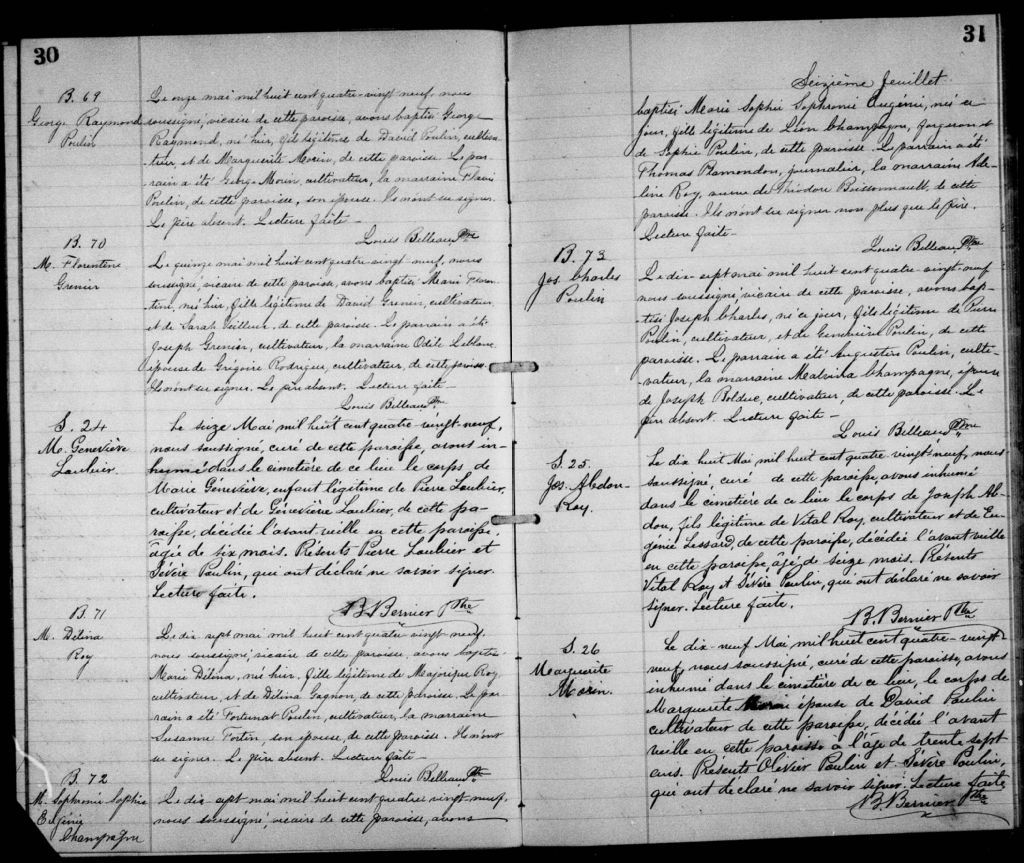 30
B. 69
George Raymond
Poulin
Le onze mai mil huit cent quatre-vingt neuf, nous
soussigné, vicaire de cette paroisse, avons baptisé George
Raymond, né hier, fils légitime de David Poulin, cultiva-
teur et de Marguerite Morin, de cette paroisse. Le par-
rain a été George Morin, cultivateur, la marraine Flavie
Poulin, de cette paroisse, son épouse. Ils n'ont su signer.
Le père absent. Lecture faite —
Louis Belleau Ptre
B. 70
M. Florentine
Grenier
Le quinze mai mil huit cent quatre-vingt-neuf, nous
soussigné, vicaire de cette paroisse, avons baptisé Marie Floren-
tine, née hier, fille légitime de David Grenier, cultivateur,
et de Sarah Veilleux, de cette paroisse. Le parrain a été
Joseph Grenier, cultivateur, la marraine Odile Leblanc,
épouse de Grégoire Rodrigue, cultivateur, de cette paroisse.
Ils n'ont su signer. Le père absent. Lecture faite —
Louis Belleau Ptre
S. 24
Me. Geneviève
Loubier.
Le seize Mai mil huit cent quatre-vingt-neuf,
nous soussigné, curé de cette paroisse, avons in-
humé dans le cimetière de ce lieu le corps de
Marie Géneviève, enfant légitime de Pierre Loubier,
cultivateur et de Géneviève Loubier, de cette pa-
roisse, décédée l'avant veille en cette paroisse,
âgée de six mois. Présents Pierre Loubier et
Sévère Poulin, qui ont déclaré ne savoir signer.
Lecture faite.
B. Bernier Ptre
B. 71
M. Délina
Roy
Le dix sept mai mil huit cent quatre-vingt neuf,
nous soussigné, vicaire de cette paroisse, avons baptisé
Marie Délina, née hier, fille légitime de Majorique Roy
cultivateur, et de Délina Gagnon, de cette paroisse. Le par-
rain a été Fortunat Poulin, cultivateur, la marraine
Susanne Fortin, son épouse, de cette paroisse. Ils n'ont
su signer. Le père absent. Lecture faite —
Louis Belleau Ptre
B. 72
M. Sophronie Sophie
Eugénie
Champagne
Le dix-sept mai mil huit cent quatre vingt-neuf,
nous soussigné, vicaire de cette paroisse, avons
31
Seizième feuillet
baptisé Marie Sophie Sophronie Eugénie, née ce
jour, fille légitime de Léon Champagne, forgeron et
de Sophie Poulin, de cette paroisse. Le parrain a été
Thomas Plamondon, journalier, la marraine Adé-
line Roy, veuve de Théodore Bissonnault, de cette
paroisse. Ils n'ont su signer non plus que le père.
Lecture faite —
Louis Belleau Ptre
B. 73
Jos. Charles
Poulin
Le dix-sept mai mil huit cent quatre-vingt-neuf
nous soussigné, vicaire de cette paroisse, avons bap-
tisé Joseph Charles, né ce jour, fils légitime de Pierre
Poulin, cultivateur, et de Geneviève Poulin, de cette
paroisse. Le parrain a été Augustin Poulin, culti-
vateur, la marraine Malvina Champagne, épouse
de Joseph Bolduc, cultivateur de cette paroisse. Le
père absent. Lecture faite —
Louis Belleau Ptre
S. 25
Jos. Abdon
Roy.
Le dix huit Mai mil huit cent quatre vingt-neuf, nous
soussigné, curé de cette paroisse, avons inhumé
dans le cimetière de ce lieu le corps de Joseph Ab-
don, fils légitime de Vital Roy, cultivateur et de Eu-
génie Lessard, de cette paroisse, décédée l'avant veille
en cette paroisse, âgé de seize mois. Présents
Vital Roy et Sévère Poulin, qui ont déclaré ne savoir
signer. Lecture faite.
B. Bernier Ptre
S. 26
Marguerite
Morin.
Le dix-neuf Mai mil huit cent quatre-vingt
neuf, nous soussigné, curé de cette paroisse, avons
inhumé dans le cimetière de ce lieu, le corps de
Marguerite Morin épouse de David Poulin
cultivateur de cette paroisse, décédée l'avant
veille en cette paroisse à l'âge de trente sept
ans. Présents Olivier Poulin et Sévère Poulin,
qui ont déclaré ne savoir signer. Lecture faite,
B. Bernier Ptre